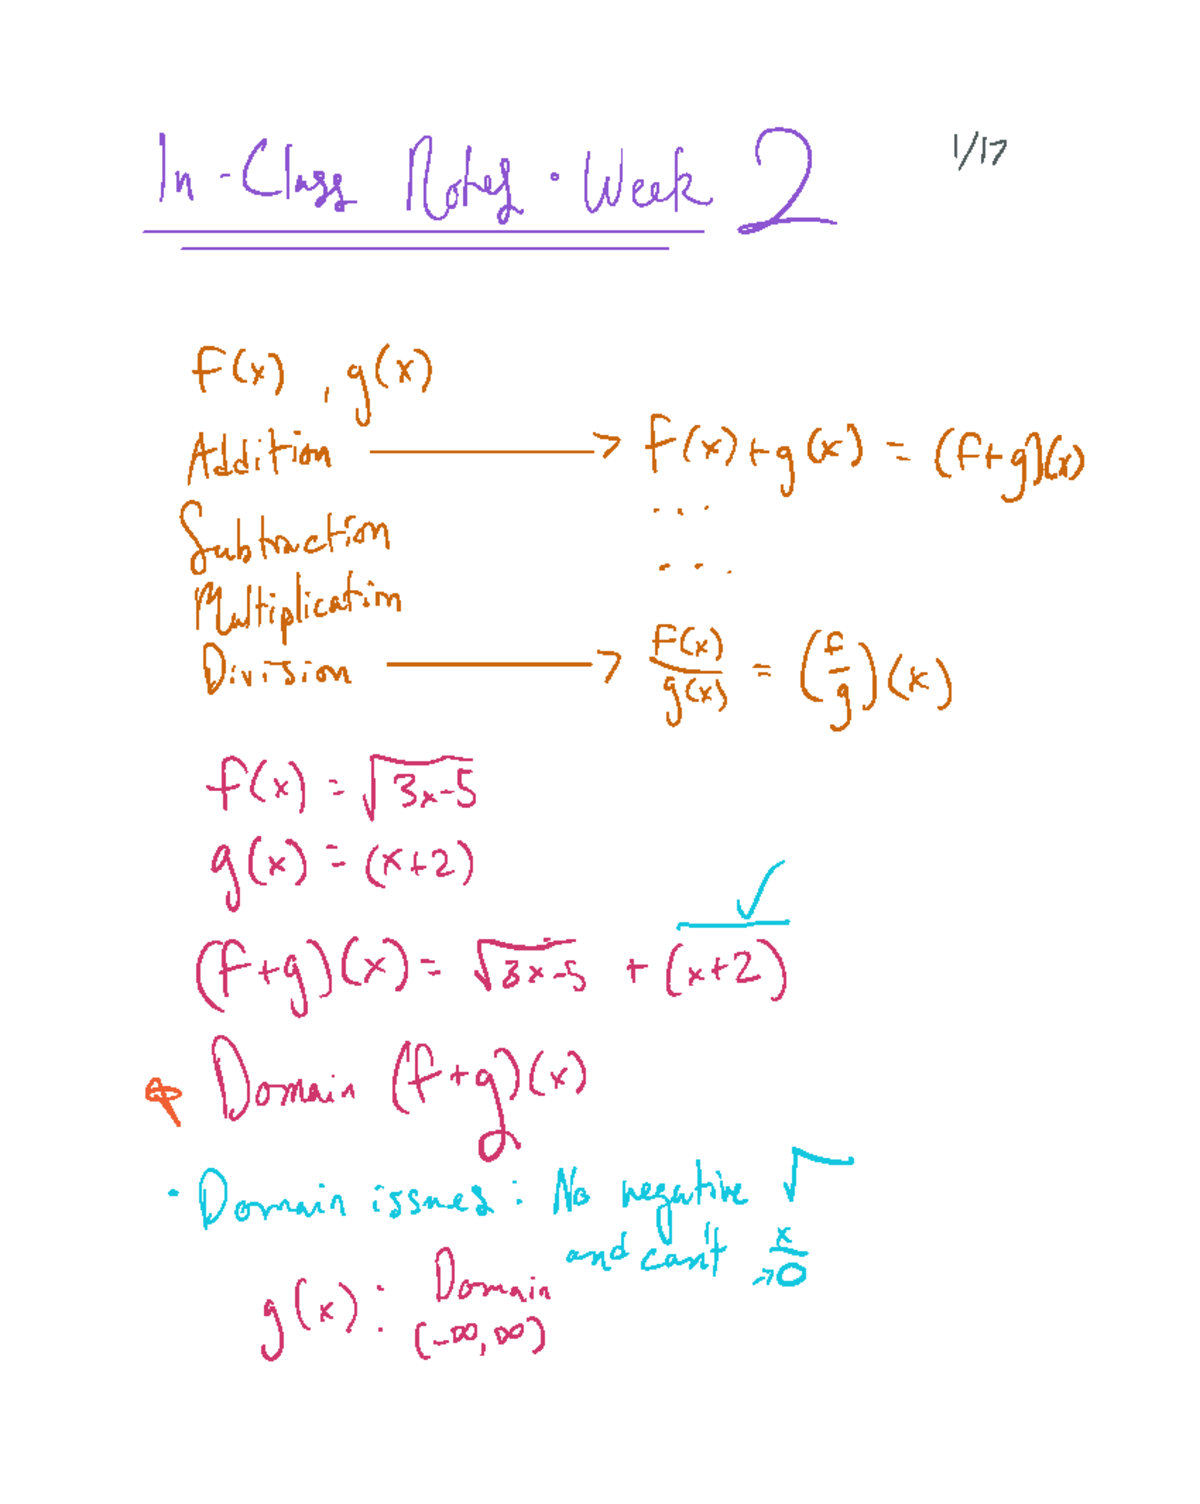 In-Class Notes · Week 2
1/17
f(x), g(x)
Addition → f(x)+g(x) = (f+g)(x)
Subtraction ...
Multiplication ...
Division → f(x)/g(x) = (f/g)(x)
f(x) = √(3x-5)
g(x) = (x+2)
(f+g)(x) = √(3x-5) + (x+2) ✓
Domain (f+g)(x)
· Domain issues: No negative √
and can't x/0
g(x): Domain
(-∞, ∞)